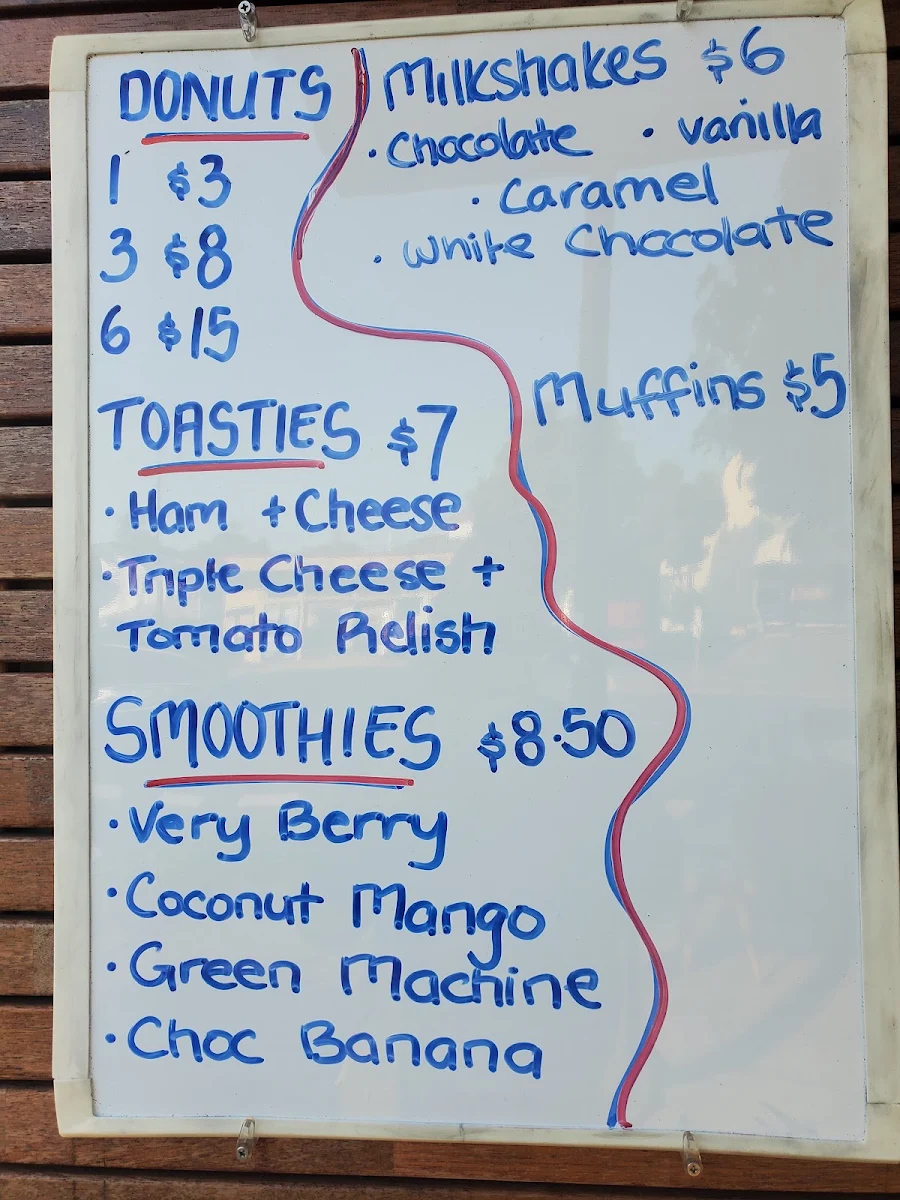 DONUTS
1 $3
3 $8
6 $15
TOASTIES $7
• Ham + Cheese
• Triple Cheese +
Tomato Relish
SMOOTHIES $8.50
• Very Berry
• Coconut Mango
• Green Machine
• Choc Banana
Milkshakes $6
• Chocolate • vanilla
• Caramel
• White Chocolate
Muffins $5